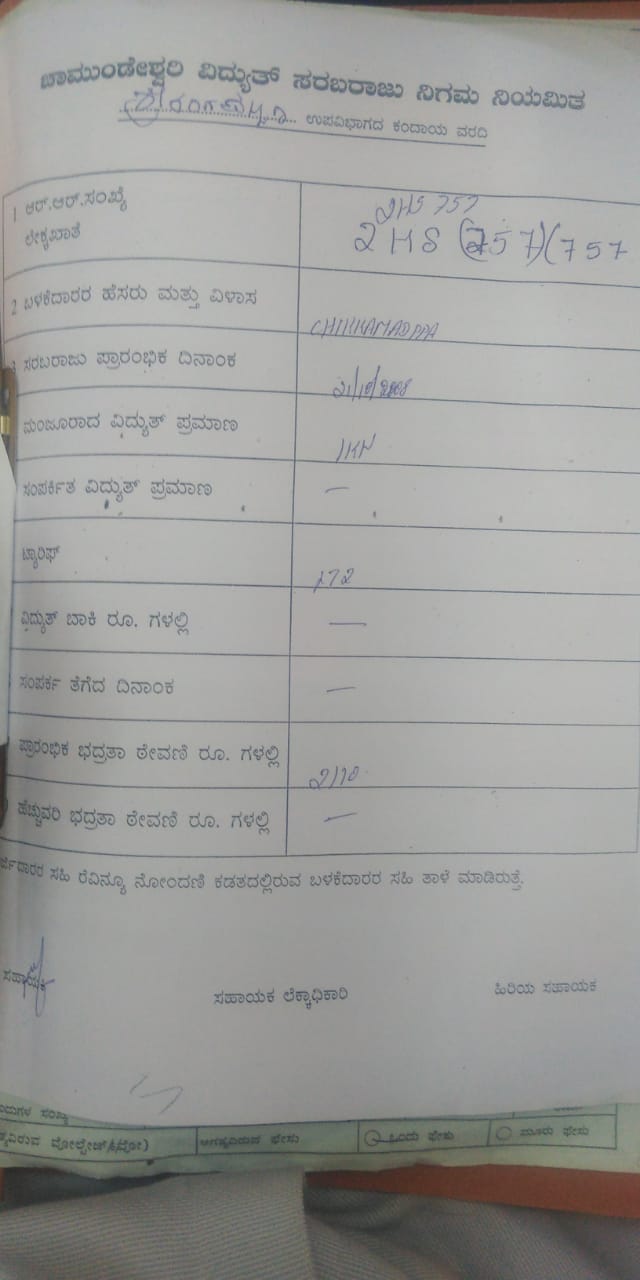 ಚಾಮುಂಡೇಶ್ವರಿ ವಿದ್ಯುತ್ ಸರಬರಾಜು ನಿಗಮ ನಿಯಮಿತ
ಉಪವಿಭಾಗದ ಕಂದಾಯ ವರದಿ
1 ಆರ್.ಆರ್.ಸಂಖ್ಯೆ
2HS 757
ಲೆಕ್ಕಖಾತೆ
2HS (757)(757
2 ಬಳಕೆದಾರರ ಹೆಸರು ಮತ್ತು ವಿಳಾಸ
CHIKKAMADPPA
ಸರಬರಾಜು ಪ್ರಾರಂಭಿಕ ದಿನಾಂಕ
21/10/2008
ಮಂಜೂರಾದ ವಿದ್ಯುತ್ ಪ್ರಮಾಣ
1KW
ಸಂಪರ್ಕಿತ ವಿದ್ಯುತ್ ಪ್ರಮಾಣ —
ಟ್ಯಾರಿಫ್
ವಿದ್ಯುತ್ ಬಾಕಿ ರೂ. ಗಳಲ್ಲಿ —
ಸಂಪರ್ಕ ತೆಗೆದ ದಿನಾಂಕ —
ಪ್ರಾರಂಭಿಕ ಭದ್ರತಾ ಠೇವಣಿ ರೂ. ಗಳಲ್ಲಿ
ಹೆಚ್ಚುವರಿ ಭದ್ರತಾ ಠೇವಣಿ ರೂ. ಗಳಲ್ಲಿ —
ಸಹಿ ರೆವಿನ್ಯೂ ನೋಂದಣಿ ಕಡತದಲ್ಲಿರುವ ಬಳಕೆದಾರರ ಸಹಿ ತಾಳೆ ಮಾಡಿರುತ್ತೆ.
ಸಹಾಯಕ ಸಹಾಯಕ ಲೆಕ್ಕಾಧಿಕಾರಿ ಹಿರಿಯ ಸಹಾಯಕ
ಒಂದು ಫೇಸು ಮೂರು ಫೇಸು